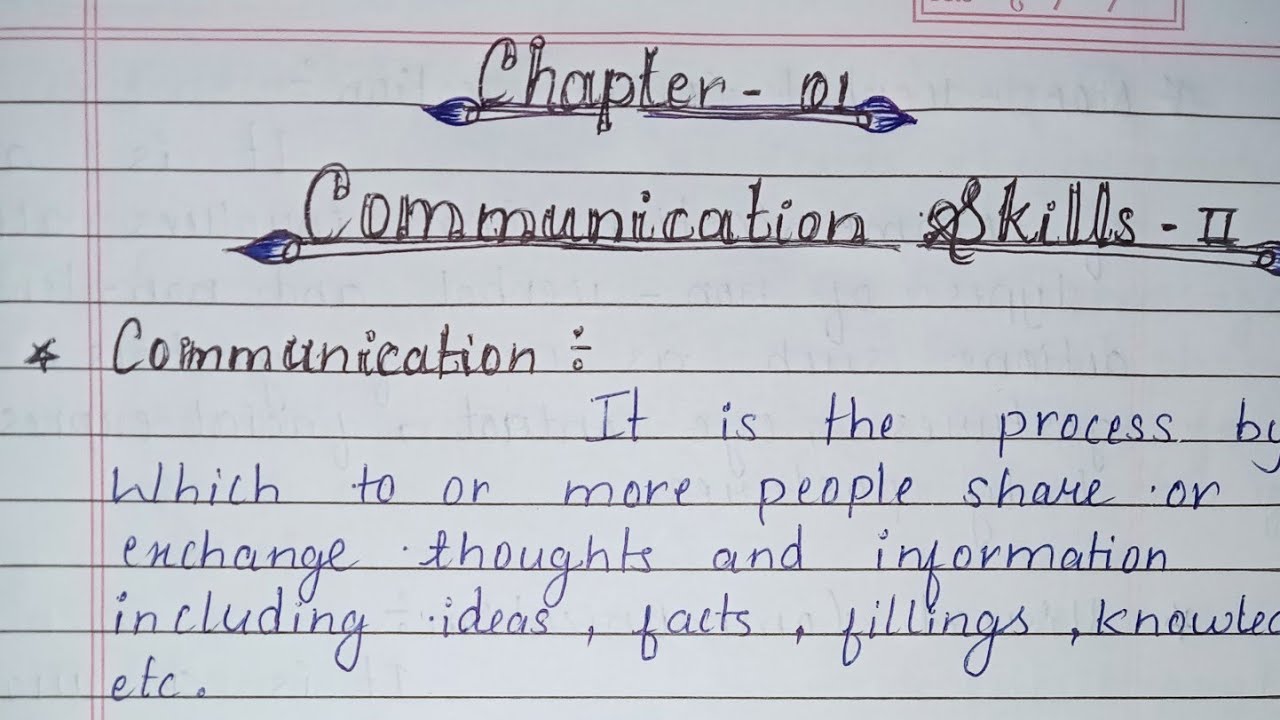 Chapter - 01
Communication Skills - II
* Communication ÷
It is the process by
Which to or more people share or
exchange thoughts and information
including ideas, facts, fillings, knowled
etc.